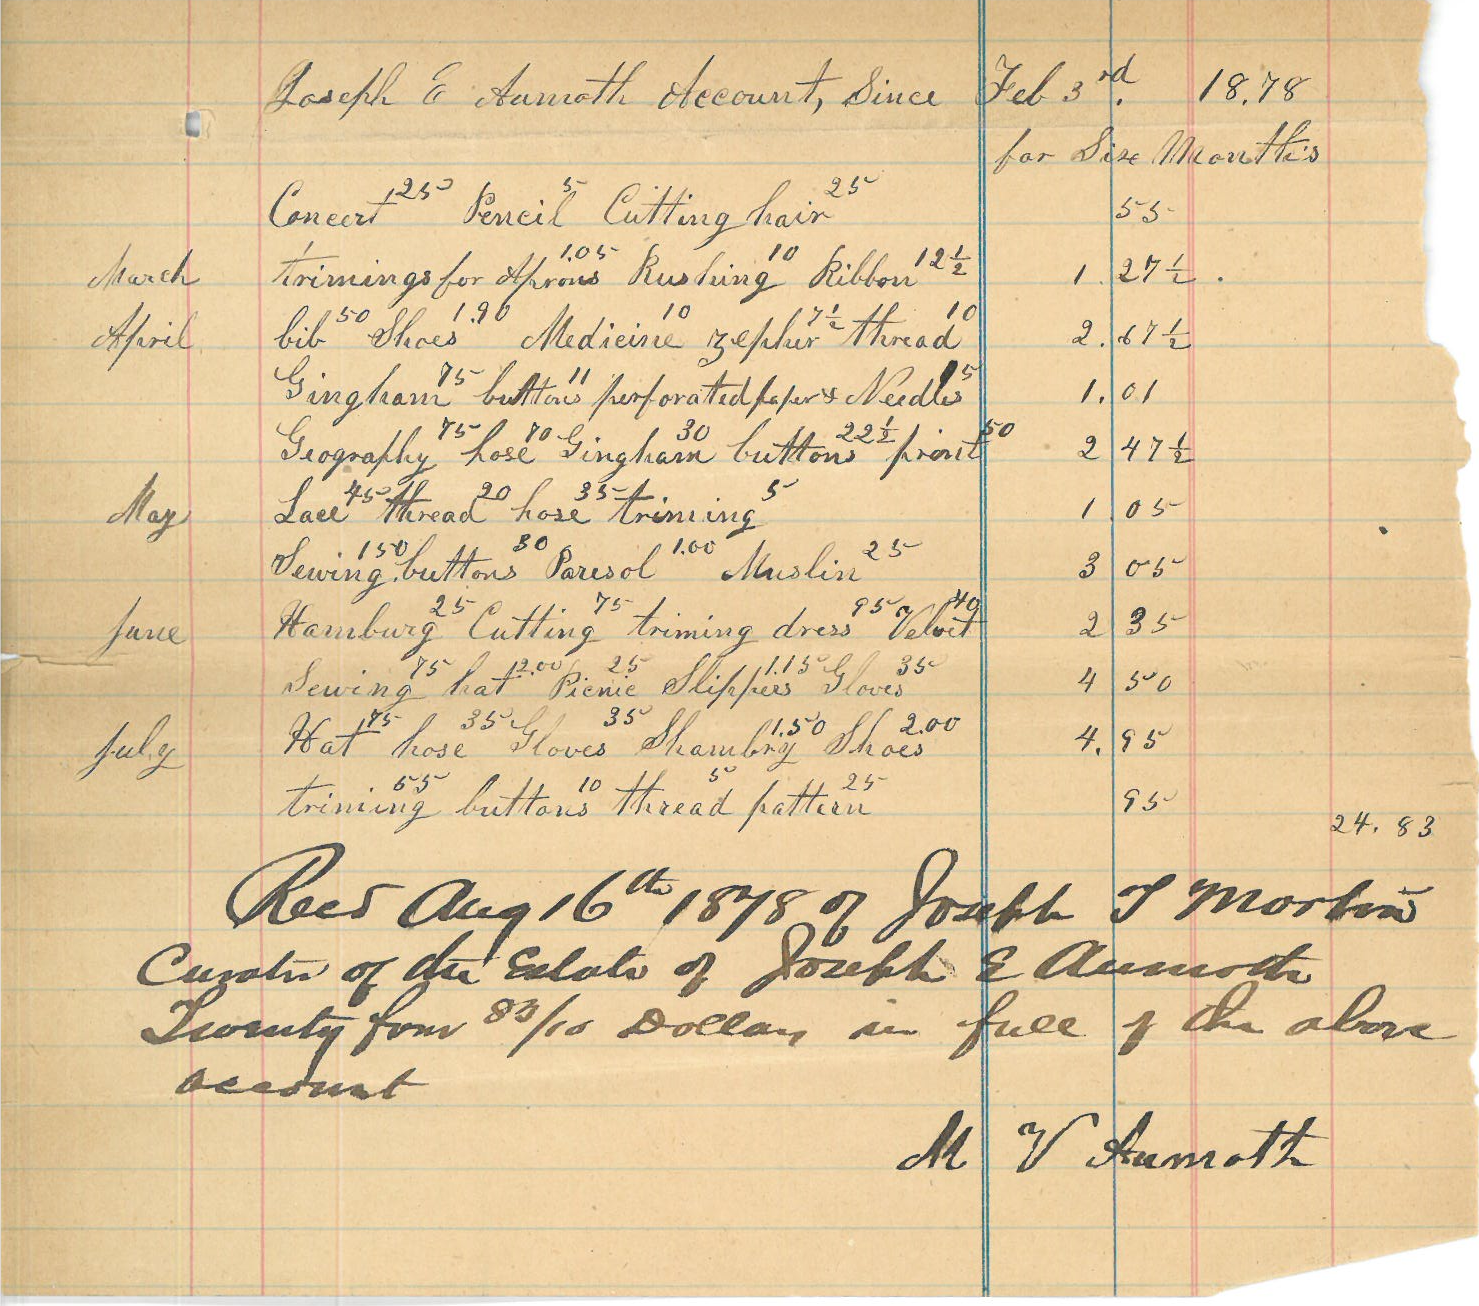 Joseph E Aumoth Account, Since Feb 3rd. 18.78
for Six Months
Concert 25 Pencil 5 Cutting hair 25 55
March trimings for Aprons 1.05 Rushing 10 Ribbon 12½ 1.27½.
April bib 50 Shoes 1.90 Medicine 10 zepher 7½ thread 10 2.67½
Gingham 75 buttons 11 perforated paper & Needles 15 1.01
Geography 75 hose 70 Gingham 30 buttons 22½ print 50 2 47½
May Lace 45 thread 20 hose 35 triming 5 1 05
Sewing 150 buttons 30 Paresol 1.00 Muslin 25 3 05
June Hamburg 25 Cutting 75 triming dress 95 Velvet 40 2 35
Sewing 75 hat 2.00 Picnic 25 Slippers 1.15 Gloves 35 4 50
July Hat 75 hose 35 Gloves 35 Shambry 1.50 Shoes 2.00 4.95
triming 55 buttons 10 thread 5 pattern 25 95
24.83
Recd Aug 16th 1878 of Joseph T Morton
Curator of the Estate of Joseph E Aumoth
Twenty four 83/10 Dollars in full of the above
account
M V Aumoth